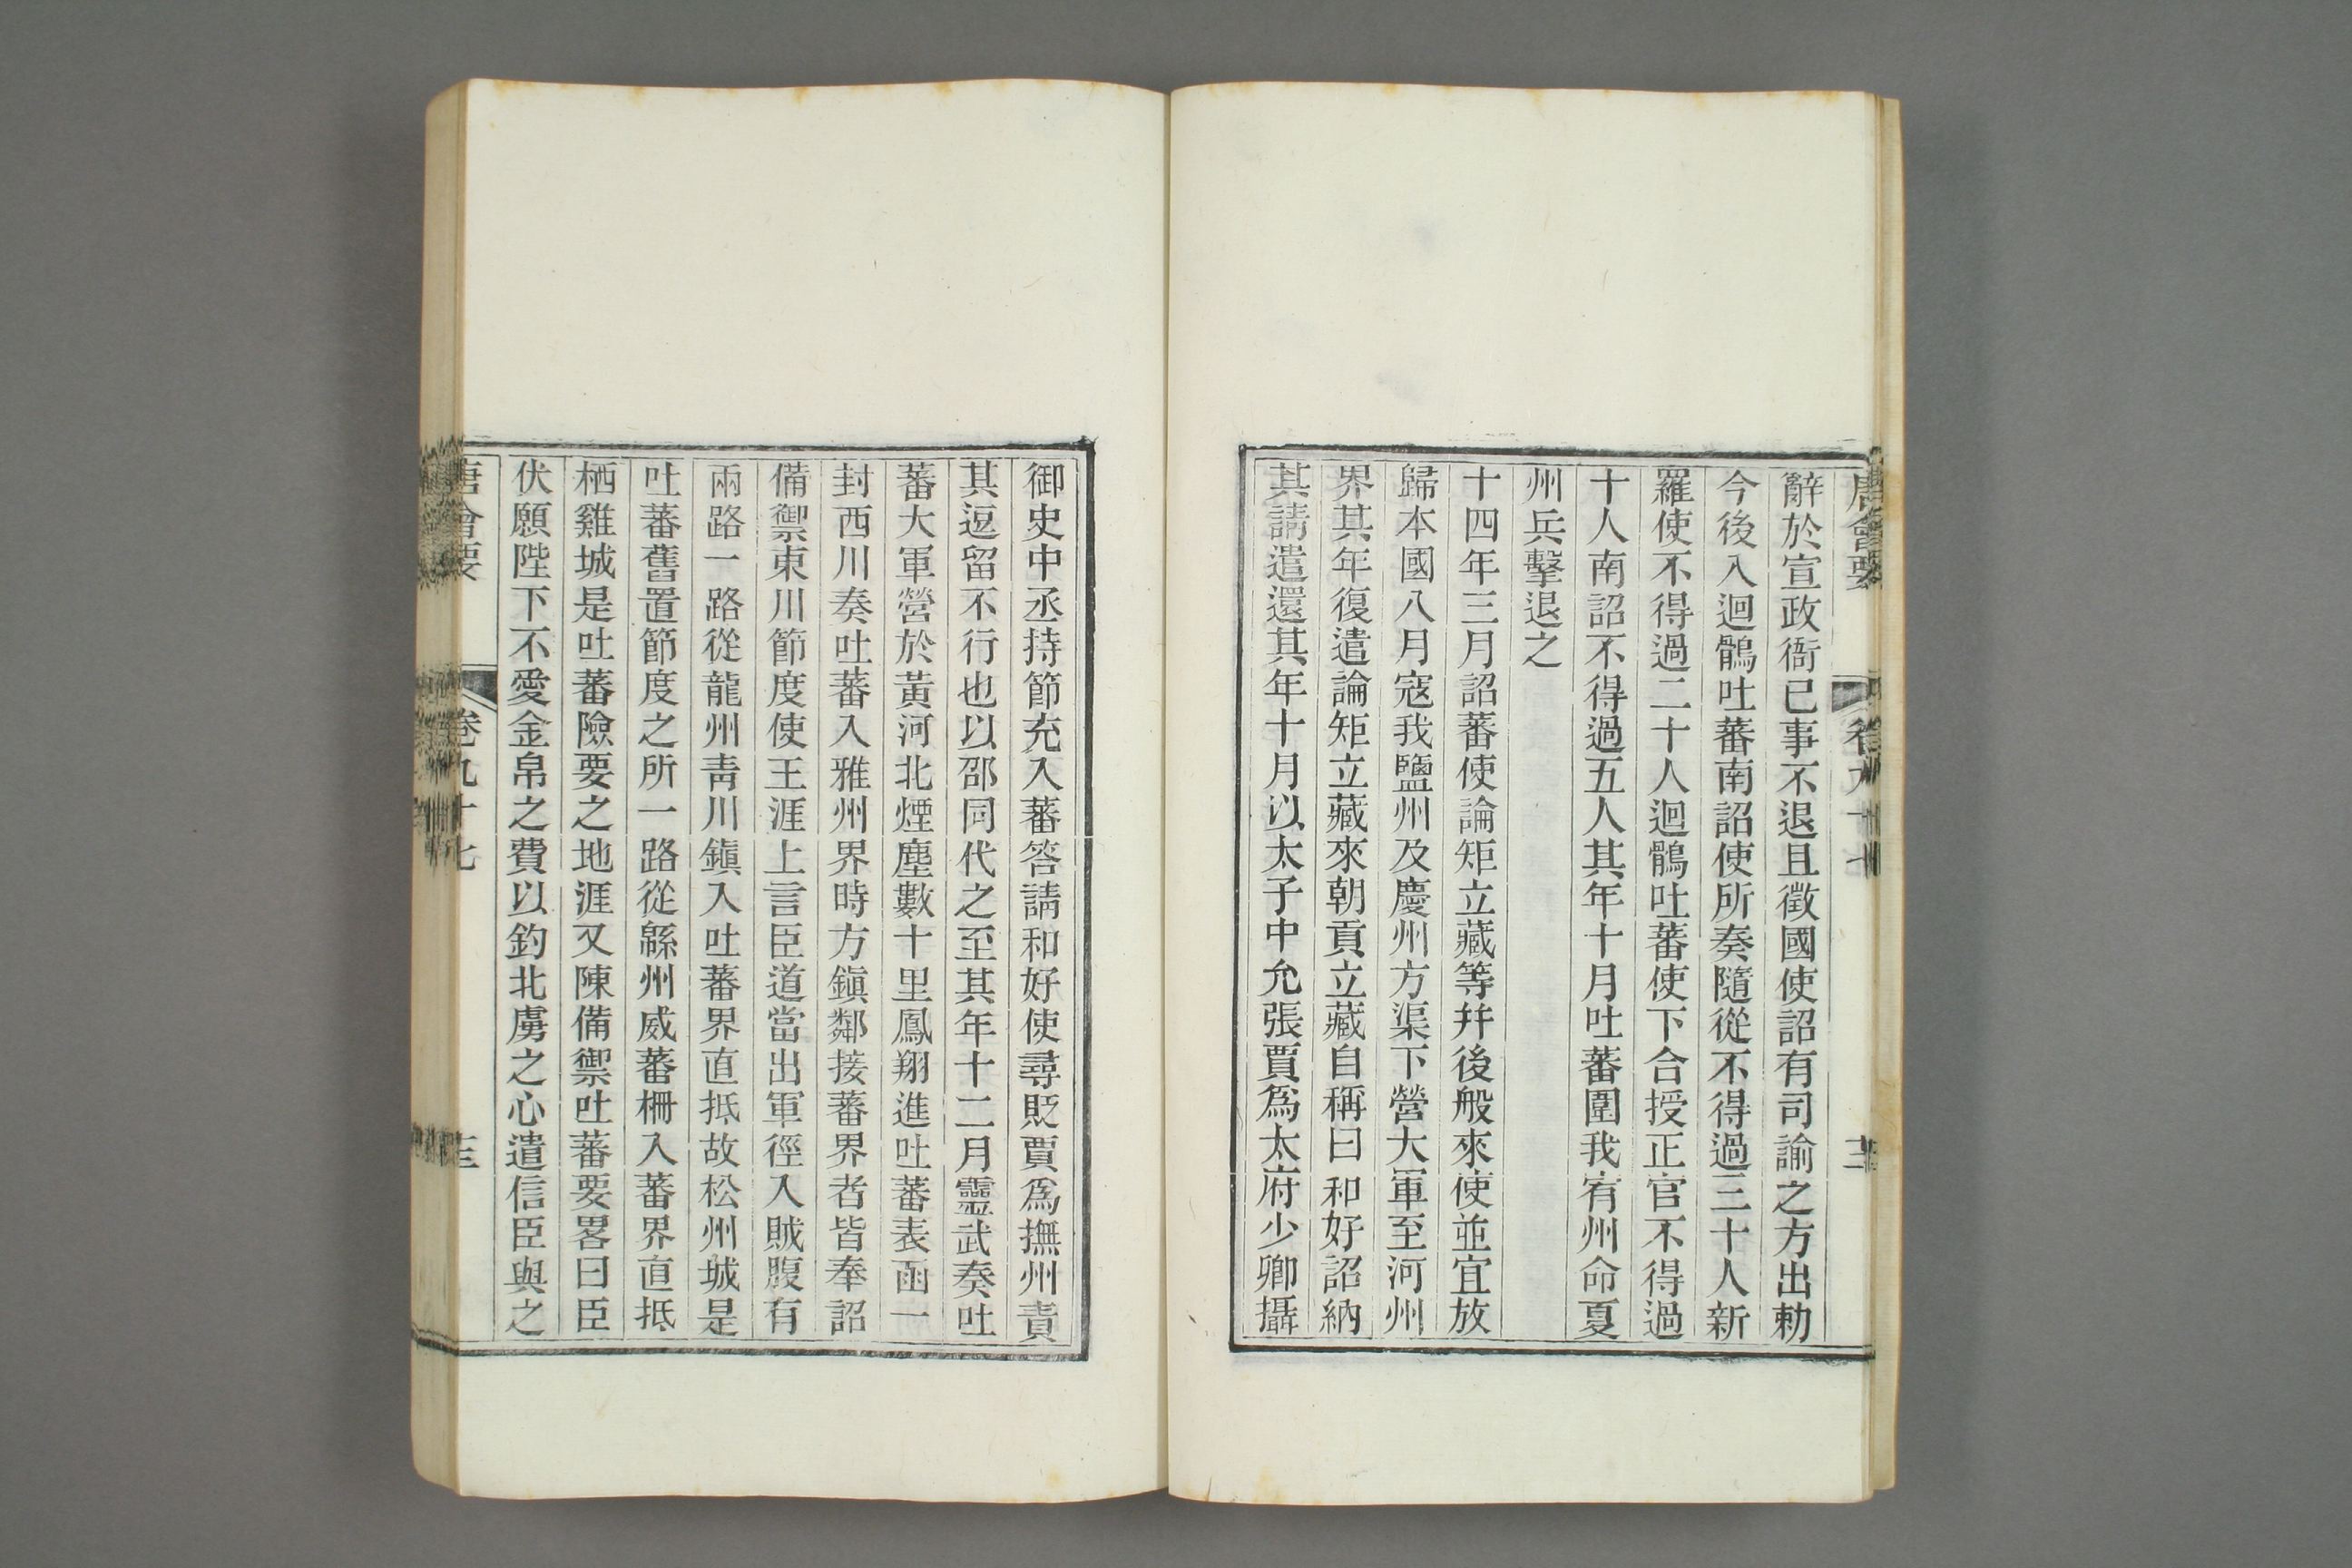 唐會要 卷九十七 十二
辭於宣政衙已事不退且徵國使詔有司諭之方出勅
今後入迴鶻吐蕃南詔使所奏隨從不得過三十人新
羅使不得過二十人迴鶻吐蕃使下合授正官不得過
十人南詔不得過五人其年十月吐蕃圍我宥州命夏
州兵擊退之
十四年三月詔蕃使論矩立藏等幷後般來使並宜放
歸本國八月寇我鹽州及慶州方渠下營大軍至河州
界其年復遣論矩立藏來朝貢立藏自稱曰和好詔納
其請遣還其年十月以太子中允張賈爲太府少卿攝
御史中丞持節充入蕃答請和好使尋貶賈爲撫州責
其逗留不行也以邵同代之至其年十二月靈武奏吐
蕃大軍營於黃河北煙塵數十里鳳翔進吐蕃表函一
封西川奏吐蕃入雅州界時方鎭鄰接蕃界者皆奉詔
備禦東川節度使王涯上言臣道當出軍徑入賊腹有
兩路一路從龍州靑川鎭入吐蕃界直抵故松州城是
吐蕃舊置節度之所一路從緜州威蕃柵入蕃界直抵
栖雞城是吐蕃險要之地涯又陳備禦吐蕃要畧曰臣
伏願陛下不愛金帛之費以釣北虜之心遣信臣與之
唐會要 卷九十七 十三